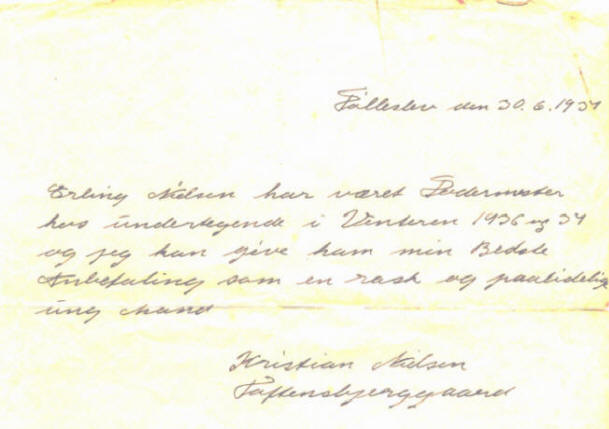 Følleslev den 30.6.1937
Erling Nielsen har været Fodermester
hos undertegende i Vinteren 1936 og 37
og jeg kan give ham min Bedste
Anbefaling som en rask og paalidelig
ung Mand
Kristian Nielsen
Toftensbjerggaard